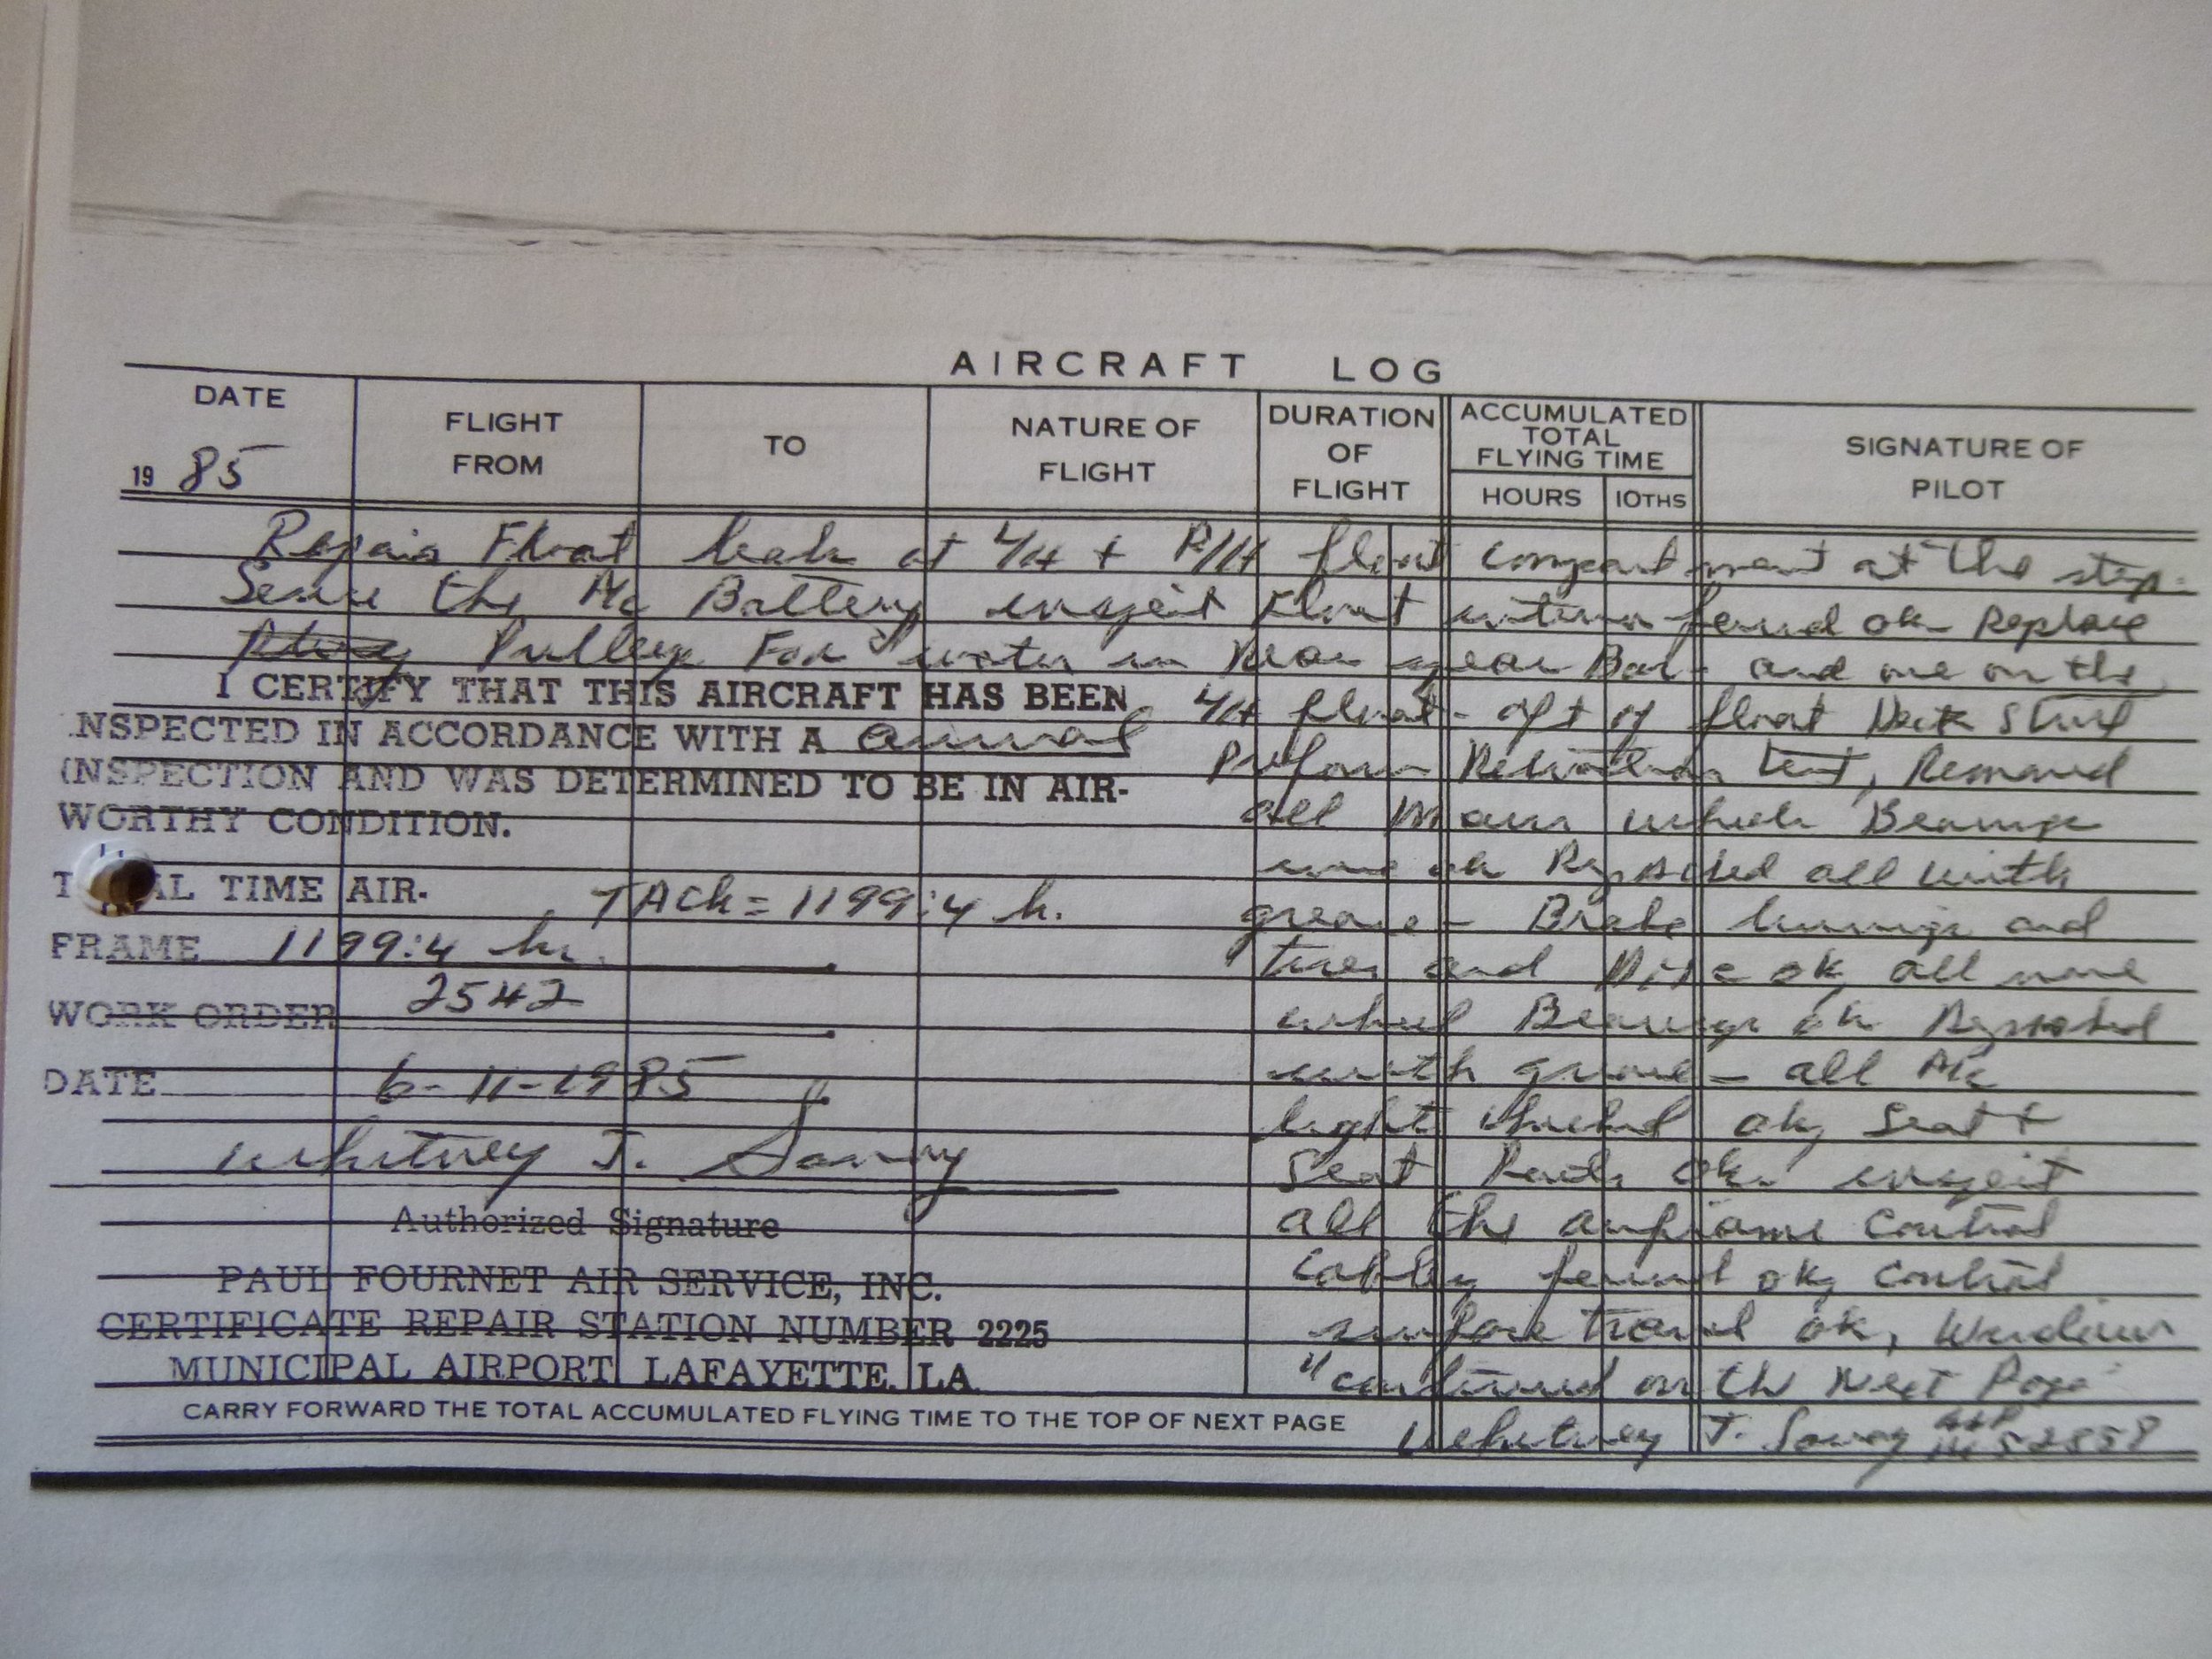 AIRCRAFT LOG
DATE
19 85
FLIGHT FROM
TO
NATURE OF FLIGHT
DURATION OF FLIGHT
ACCUMULATED TOTAL FLYING TIME
HOURS
10THS
SIGNATURE OF PILOT
Repair Float leak at L/H + R/H float compartment at the step.
the A/C Battery float found ok Replace
Pulley For water in Rear Bar - and one on the
I CERTIFY THAT THIS AIRCRAFT HAS BEEN
INSPECTED IN ACCORDANCE WITH A annual
INSPECTION AND WAS DETERMINED TO BE IN AIR-
WORTHY CONDITION.
TOTAL TIME AIR-
TACh = 1199:4 h.
FRAME 1199:4 hr.
WORK ORDER 2542
DATE 6-11-1985
Whitney J.
Authorized Signature
PAUL FOURNET AIR SERVICE, INC.
CERTIFICATE REPAIR STATION NUMBER 2225
MUNICIPAL AIRPORT LAFAYETTE, LA
L/H float - aft of float Deck Strut
test, Removed
all Main wheel Bearings
ok all with
grease - Brake linings and
tires and ok, all nose
wheel Bearings ok
with grease - all A/C
light ok, Seat +
Seat ok.
all the airframe Control
found ok, Control
travel ok,
"continued on the Next Page
Whitney J.
CARRY FORWARD THE TOTAL ACCUMULATED FLYING TIME TO THE TOP OF NEXT PAGE